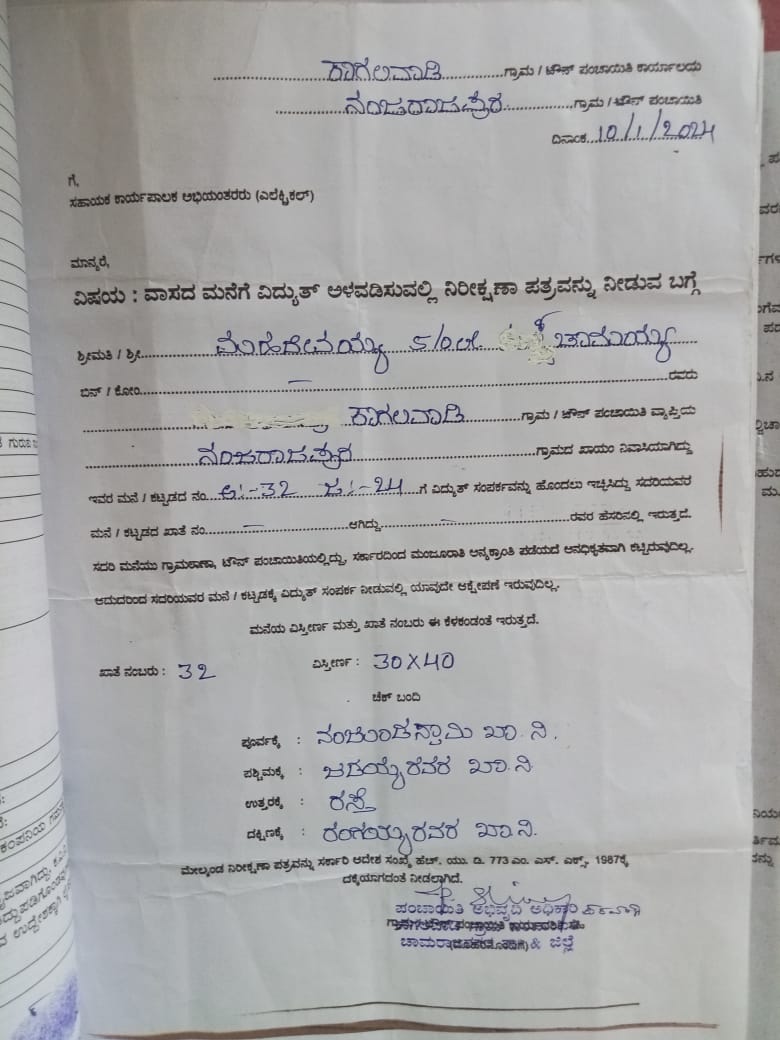 ಕಾಗಲವಾಡಿ ಗ್ರಾಮ / ಟೌನ್ ಪಂಚಾಯಿತಿ ಕಾರ್ಯಾಲಯ
ನಂಜರಾಜಪುರ ಗ್ರಾಮ / ಟೌನ್ ಪಂಚಾಯಿತಿ
ದಿನಾಂಕ 10/1/2024
ಗೆ,
ಸಹಾಯಕ ಕಾರ್ಯಪಾಲಕ ಅಭಿಯಂತರರು (ಎಲೆಕ್ಟ್ರಿಕಲ್)
ಮಾನ್ಯರೆ,
ವಿಷಯ : ವಾಸದ ಮನೆಗೆ ವಿದ್ಯುತ್ ಅಳವಡಿಸುವಲ್ಲಿ ನಿರೀಕ್ಷಣಾ ಪತ್ರವನ್ನು ನೀಡುವ ಬಗ್ಗೆ
ಶ್ರೀಮತಿ / ಶ್ರೀ ಮಹದೇವಯ್ಯ S/o ಚಾಮಯ್ಯ
ಬಿನ್ / ಕೋಂ ರವರು
ಕಾಗಲವಾಡಿ ಗ್ರಾಮ / ಟೌನ್ ಪಂಚಾಯಿತಿ ವ್ಯಾಪ್ತಿಯ
ನಂಜರಾಜಪುರ ಗ್ರಾಮದ ಖಾಯಂ ನಿವಾಸಿಯಾಗಿದ್ದು
ಇವರ ಮನೆ / ಕಟ್ಟಡದ ನಂ. ಅ:-32 ಜ:-24 ಗೆ ವಿದ್ಯುತ್ ಸಂಪರ್ಕವನ್ನು ಹೊಂದಲು ಇಚ್ಛಿಸಿದ್ದು ಸದರಿಯವರ
ಮನೆ / ಕಟ್ಟಡದ ಖಾತೆ ನಂ. ಆಗಿದ್ದು ರವರ ಹೆಸರಿನಲ್ಲಿ ಇರುತ್ತದೆ.
ಸದರಿ ಮನೆಯು ಗ್ರಾಮಠಾಣಾ, ಟೌನ್ ಪಂಚಾಯಿತಿಯಲ್ಲಿದ್ದು, ಸರ್ಕಾರದಿಂದ ಮಂಜೂರಾತಿ ಅನ್ಯಕ್ರಾಂತಿ ಪಡೆಯದೆ ಅನಧಿಕೃತವಾಗಿ ಕಟ್ಟಿರುವುದಿಲ್ಲ.
ಆದುದರಿಂದ ಸದರಿಯವರ ಮನೆ / ಕಟ್ಟಡಕ್ಕೆ ವಿದ್ಯುತ್ ಸಂಪರ್ಕ ನೀಡುವಲ್ಲಿ ಯಾವುದೇ ಆಕ್ಷೇಪಣೆ ಇರುವುದಿಲ್ಲ.
ಮನೆಯ ವಿಸ್ತೀರ್ಣ ಮತ್ತು ಖಾತೆ ನಂಬರು ಈ ಕೆಳಕಂಡಂತೆ ಇರುತ್ತದೆ.
ಖಾತೆ ನಂಬರು : 32 ವಿಸ್ತೀರ್ಣ : 30X40
ಚೆಕ್ ಬಂದಿ
ಪೂರ್ವಕ್ಕೆ : ನಂಜುಂಡಸ್ವಾಮಿ ಖಾ. ನಿ.
ಪಶ್ಚಿಮಕ್ಕೆ : ಜಡಯ್ಯರವರ ಖಾ. ನಿ
ಉತ್ತರಕ್ಕೆ : ರಸ್ತೆ
ದಕ್ಷಿಣಕ್ಕೆ : ರಂಗಯ್ಯರವರ ಖಾ. ನಿ.
ಮೇಲ್ಕಂಡ ನಿರೀಕ್ಷಣಾ ಪತ್ರವನ್ನು ಸರ್ಕಾರಿ ಆದೇಶ ಸಂಖ್ಯೆ ಹೆಚ್. ಯು. ಡಿ. 773 ಎಂ. ಎಸ್. ಎಕ್ಸ್. 1987ಕ್ಕೆ
ದಕ್ಕೆಯಾಗದಂತೆ ನೀಡಲಾಗಿದೆ.
ಪಂಚಾಯಿತಿ ಅಭಿವೃದ್ಧಿ ಅಧಿಕಾರಿ
& ಜಿಲ್ಲೆ